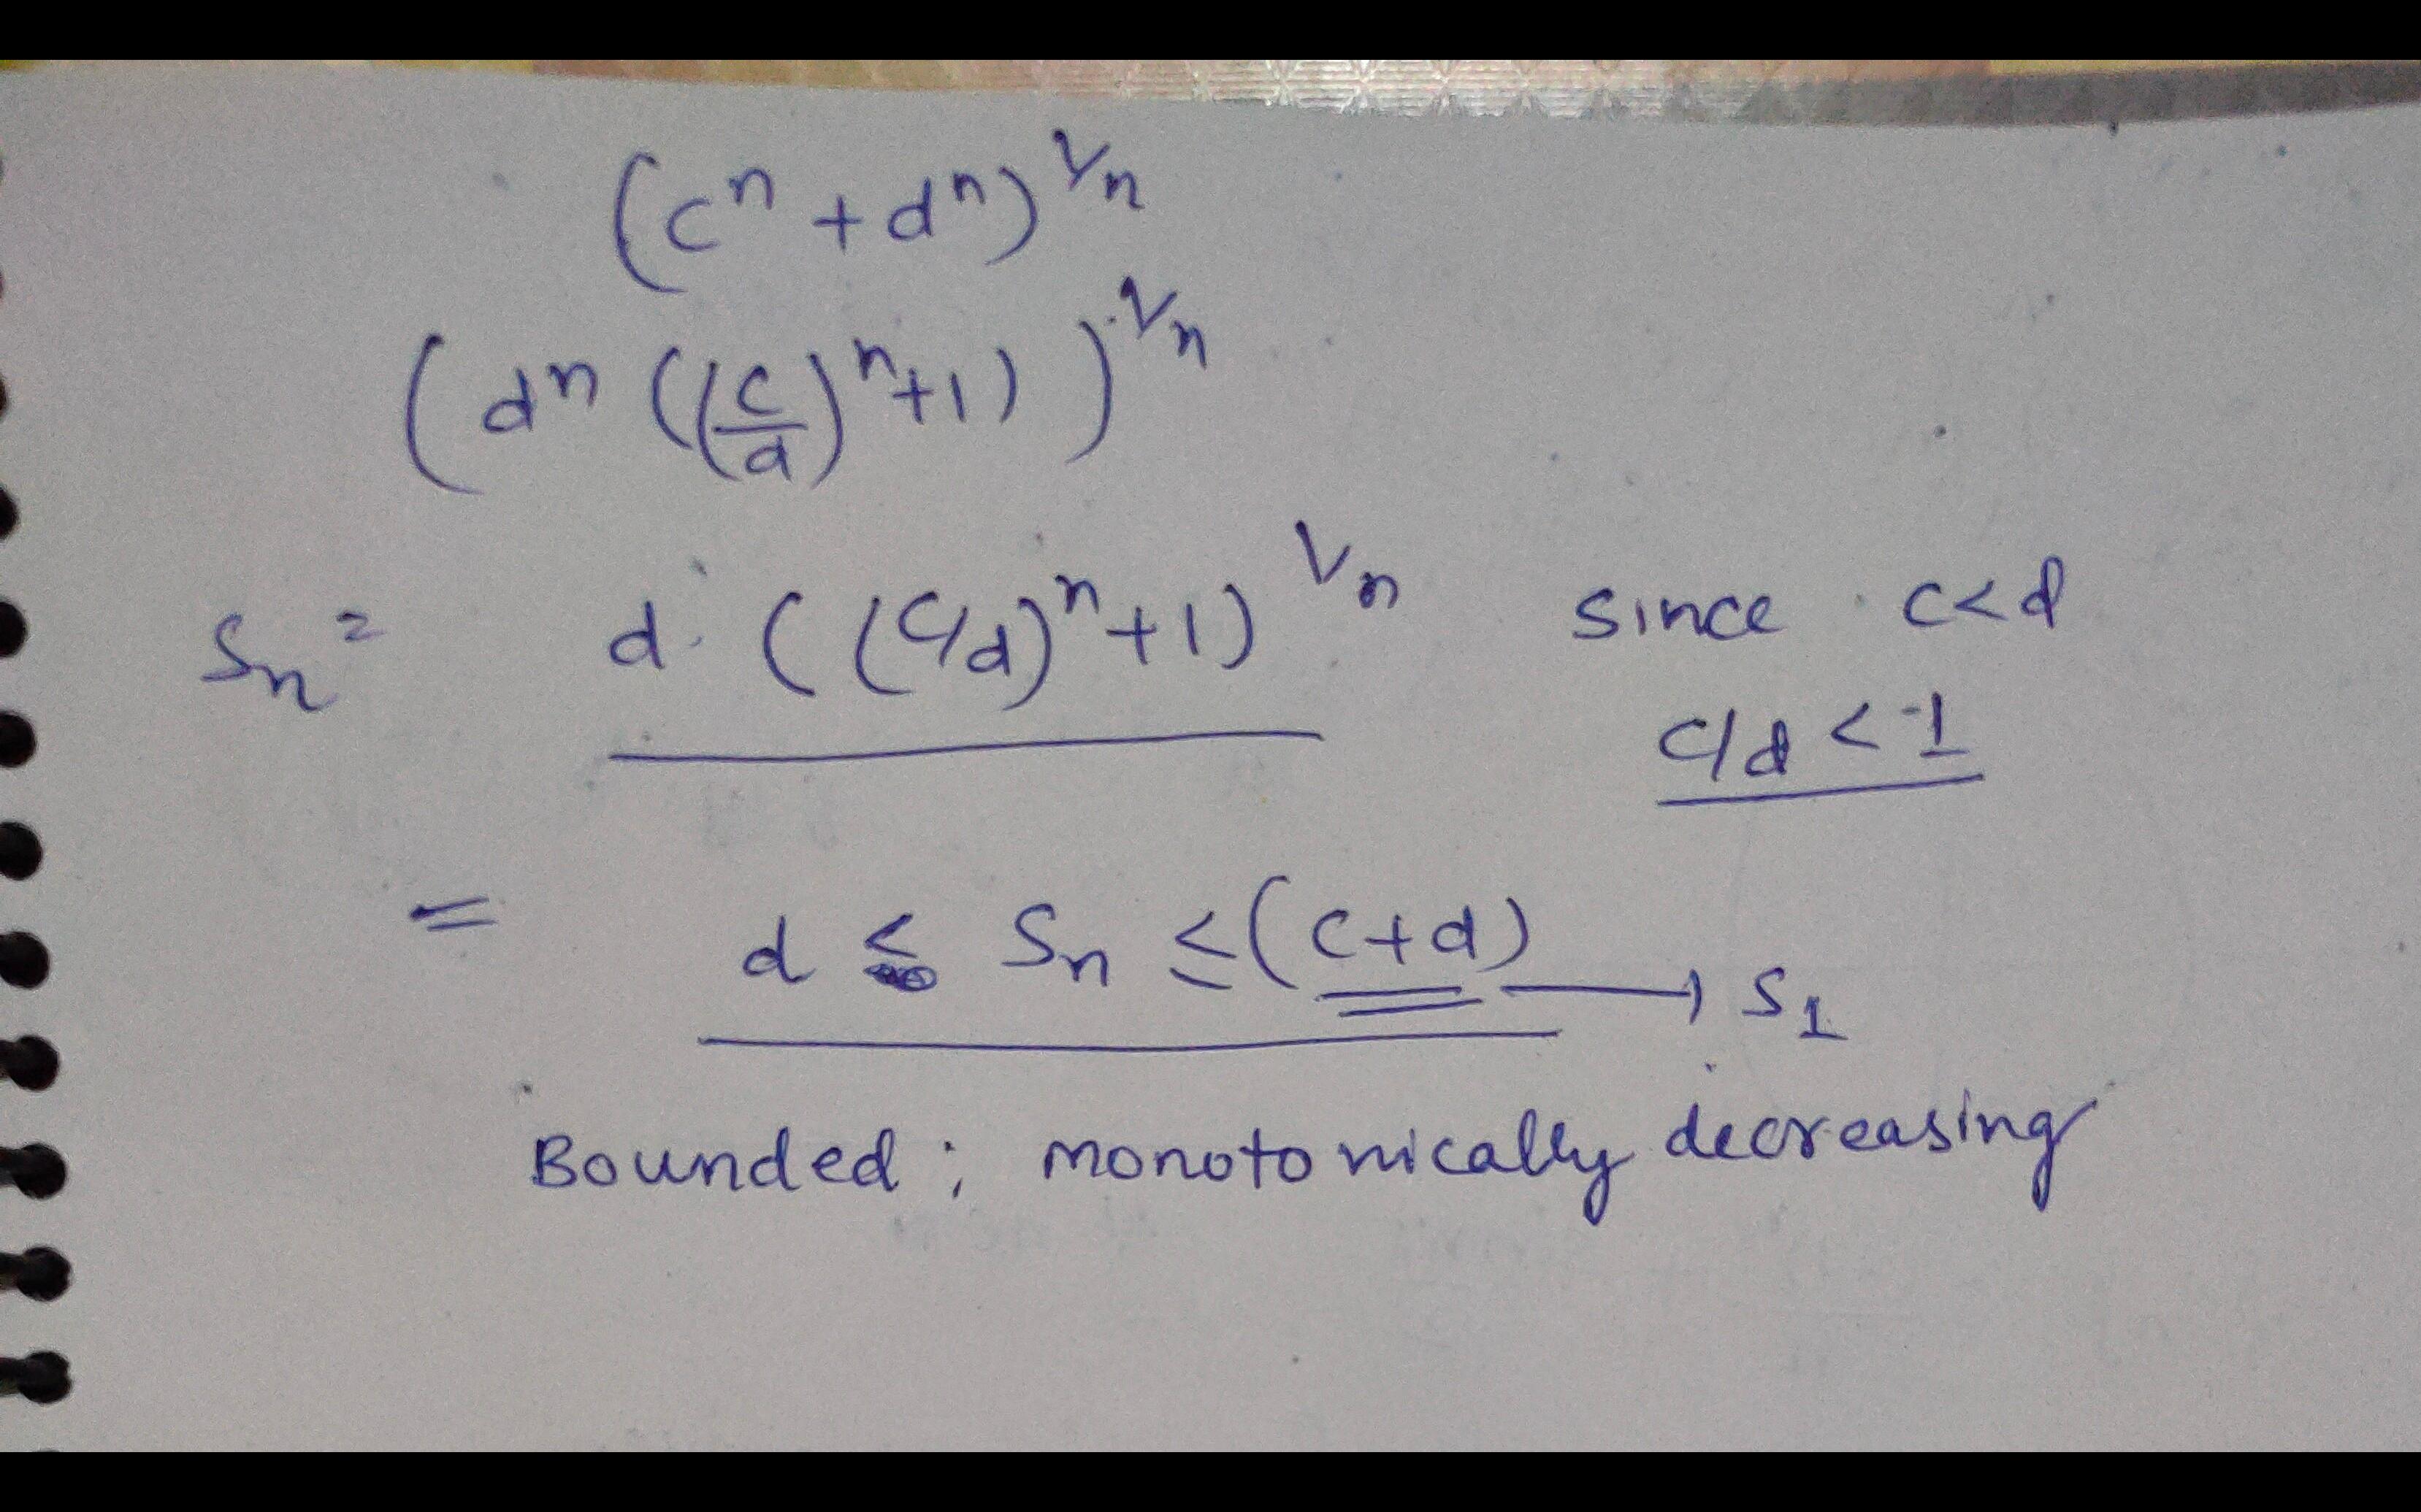 (cⁿ + dⁿ)^1/n
(dⁿ ((c/d)ⁿ+1))^1/n
Sn = d. ((c/d)ⁿ+1)^1/n since c<d
c/d < 1
= d ≤ Sn ≤ (c+d) → S1
Bounded ; monotonically decreasing